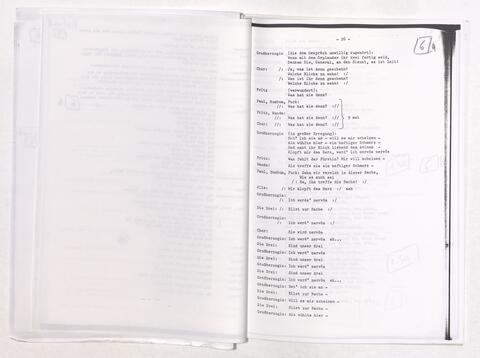 - 26 -
6
Großherzogin (die dem Gespräch unwillig zugehört):
Wenn mit dem Geplauder ihr zwei fertig seid,
Denken Sie, General, an den Dienst, es ist Zeit!
Chor: /: Ja, was ist denn geschehn?
Welche Blicke zu sehn! :/
/: Was ist ihr denn geschehn?
Welche Blicke zu sehn! :/
Fritz (verwundert):
Was hat sie denn?
Paul, Bumbum, Puck:
//: Was hat sie denn? ://
Fritz, Wanda:
//: Was hat sie denn? ://
Chor: //: Was hat sie denn? ://
Großherzogin (in großer Erregung):
Seh' ich sie an - will es mir scheinen -
Als wühlte hier - ein heftiger Schmerz -
Klopft mir das Herz, werd' ich nervös
Fritz: Was fehlt der Fürstin? Wir will scheinen
Wanda: Als träfe sie ein heftiger Schmerz
Paul, Bumbum, Puck:
Wie es auch sei
Alle: /: Wir klopft das Herz :/
Großherzogin:
/: Ich werde' nervös :/
Die Drei: /: Eilst zur Rache :/
Großherzogin:
/: Ich werd' nervös :/
Chor: Sie wird nervös
Großherzogin: Ich werd' nervös
Die Drei: Sind unser drei
Großherzogin: Ich werd' nervös
Die Drei: Sind unser drei
Großherzogin: Ich werd' nervös
Die Drei: Sind unser drei
Großherzogin: Ich werd' nervös
Großherzogin: Seh' ich sie an -
Die Drei: Eilst zur Rache -
Großherzogin: Will es mir scheinen -
Die Drei: Eilst zur Rache -
Großherzogin: Als wühlte hier -